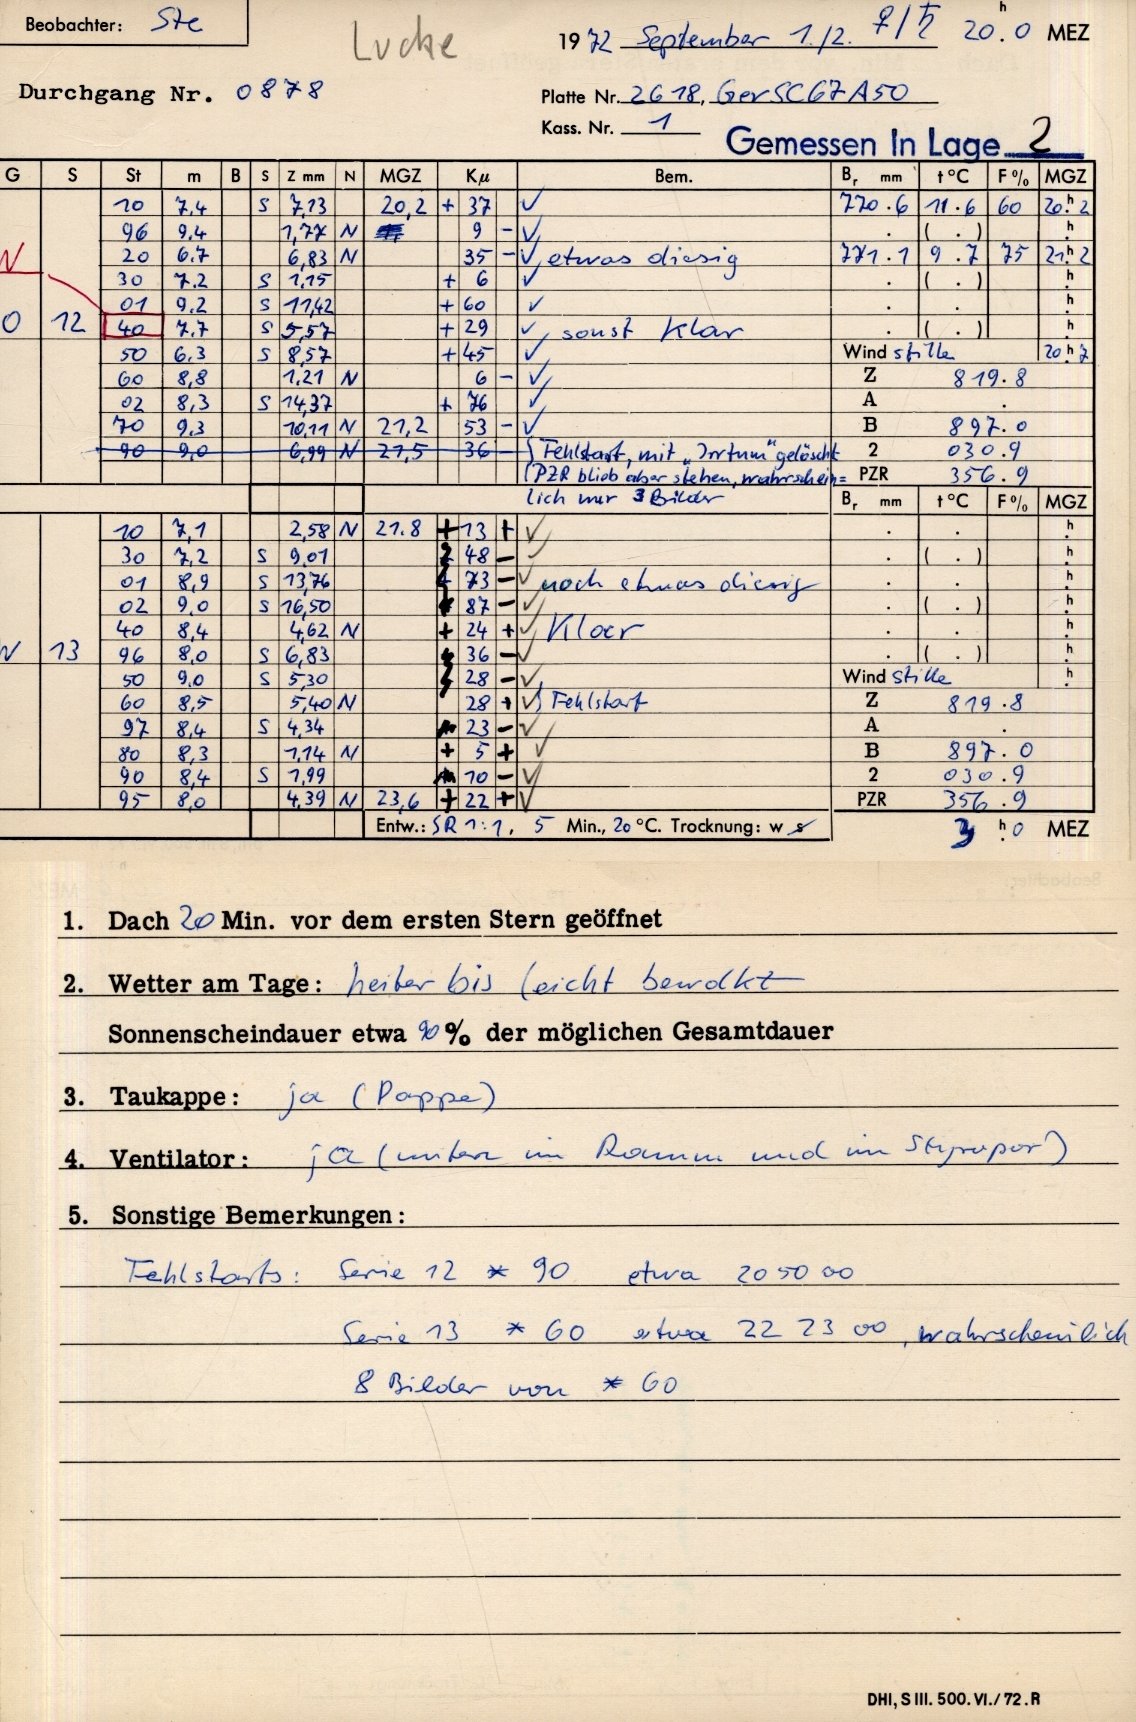 Beobachter: Ste
Lücke
1972 September 1./2. ♀/♄ 20h.0 MEZ
Durchgang Nr. 0878
Platte Nr. 2618, GerSC67A50
Kass. Nr. 1
Gemessen In Lage 2
G S St m B S Z mm N MGZ Kμ Bem. Br mm t°C F% MGZ
10 7,4 S 7,13 20,2 + 37 ✓ 770.6 11.6 60 20h.2
96 9.4 1,77 N 9 - ✓ . ( . ) h.
N 20 6.7 6,83 N 35 - ✓ etwas diesig 771.1 9.7 75 21h.2
30 7.2 S 1,15 + 6 ✓ . ( . ) h.
01 9.2 S 11,42 + 60 ✓ . . h.
O 12 40 7.7 S 5,57 + 29 ✓ sonst klar . ( . ) h.
50 6.3 S 8,57 + 45 ✓ Wind stille 20h.7
60 8,8 1.21 N 6 - ✓ Z 819.8
02 8,3 S 14,37 + 76 ✓ A .
70 9,3 10,11 N 21,2 53 - ✓ B 897.0
90 9,0 6,99 N 21,5 36 - { Fehlstart, mit „Irrtum" gelöscht 2 030.9
(PZR blieb aber stehen, wahrschein= PZR 356.9
lich nur 3 Bilder Br mm t°C F% MGZ
10 7,1 2,58 N 21.8 + 13 + ✓ . . h.
30 7,2 S 9,01 48 - ✓ . ( . ) h.
01 8,9 S 13,76 73 - ✓ noch etwas diesig . . h.
02 9.0 S 16,50 87 - ✓ . ( . ) h.
40 8,4 4,62 N + 24 + ✓ Klar . . h.
N 13 96 8,0 S 6,83 36 - ✓ . ( . ) h.
50 9.0 S 5,30 28 - ✓ Wind stille h.
60 8,5 5,40 N 28 + ✓ } Fehlstart Z 819.8
97 8,4 S 4,34 23 - ✓ A .
80 8,3 1,14 N + 5 + ✓ B 897.0
90 8,4 S 1,99 10 - ✓ 2 030.9
95 8,0 4.39 N 23,6 + 22 + ✓ PZR 356.9
Entw.: SR 1:1, 5 Min., 20 °C. Trocknung: w s 3h.0 MEZ
1. Dach 20 Min. vor dem ersten Stern geöffnet
2. Wetter am Tage: heiter bis leicht bewölkt
Sonnenscheindauer etwa 90 % der möglichen Gesamtdauer
3. Taukappe: ja (Pappe)
4. Ventilator: ja (unten im Raum und im Styropor)
5. Sonstige Bemerkungen:
Fehlstarts: Serie 12 * 90 etwa 20 50 00
Serie 13 * 60 etwa 22 23 00, wahrscheinlich
8 Bilder von * 60
DHI, S III. 500. VI./72. R